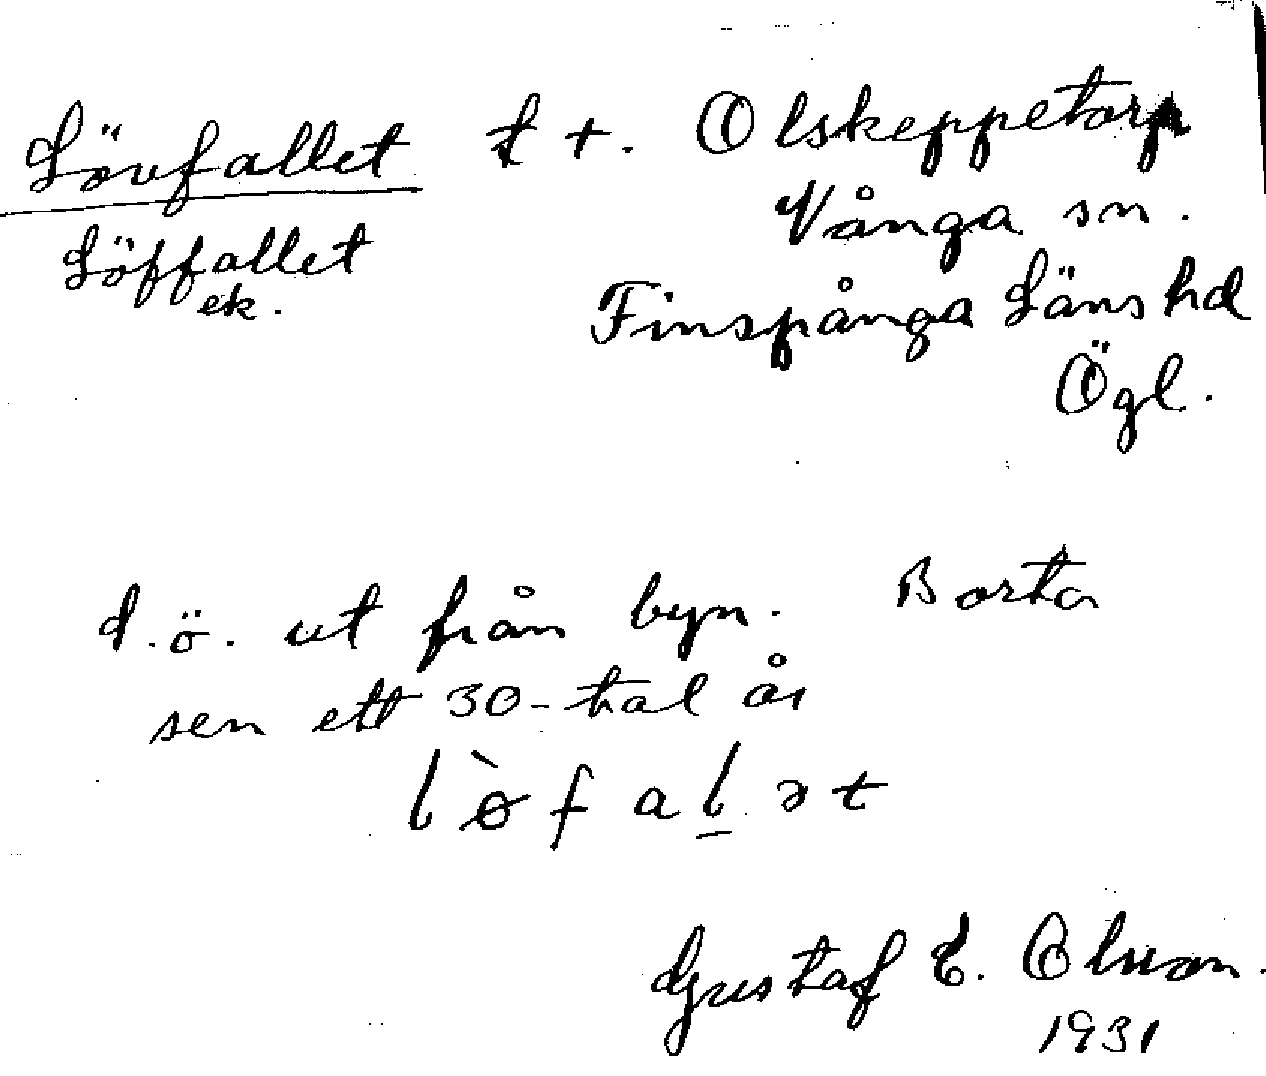 Lövfallet t +. Olskeppetorp
Löffallet Vånga sn.
ek. Finspånga Läns hd
Ögl.
d.ö. ut från byn. Borta
sen ett 30-tal år
lòfalət
Gustaf E. Olsson.
1931